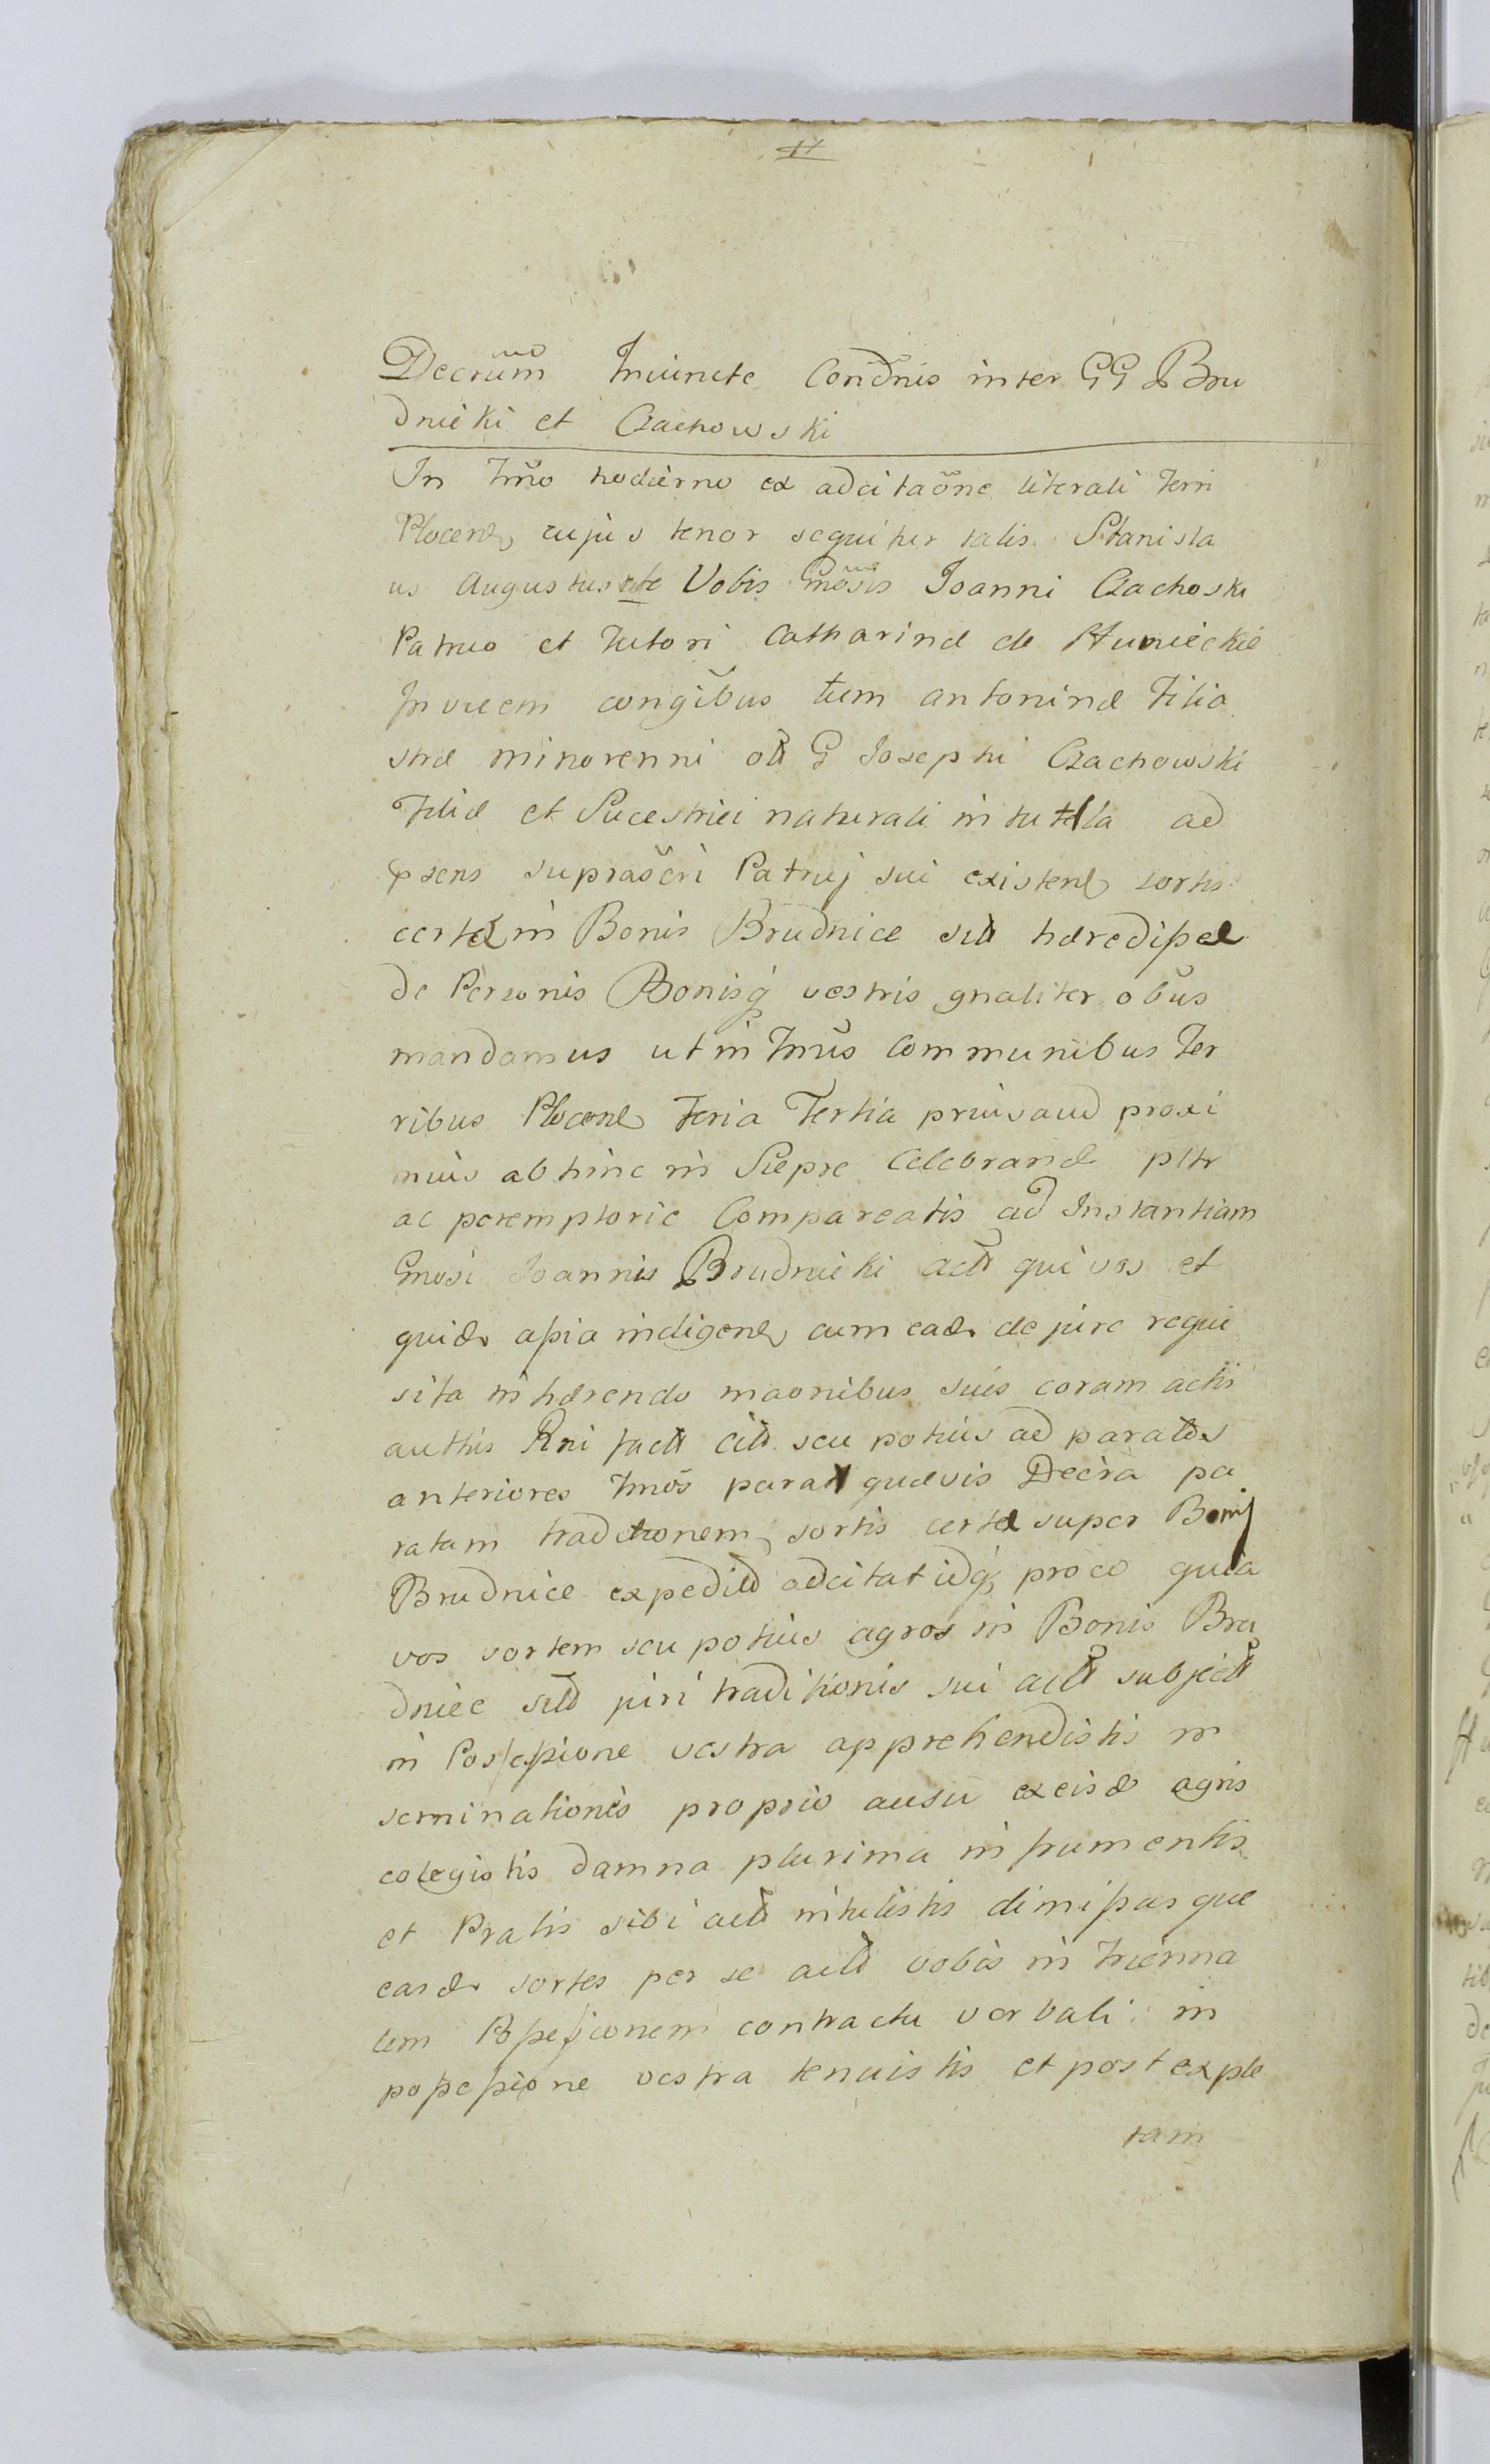 Decrũm Iniuncte Condnis inter GG Bru
dnicki et Czachowski
In Tm̃o hodierno ex adcitaõne literali Terri
Plocen, cujus tenor sequitur talis Stanisla
us Augustus etc Vobis Gnõsis Joanni Czachoski
Patruo et Tutori Catharinæ de Humieckie
Invicem congĩbus tum Antoninæ Filia
stræ minorenni ol G Josephi Czachowski
Filiæ et Sucestrici naturali in tutella ad
psens suprascri Patruj sui existen sortis
certæ in Bonis Brudnice sit hæredissæ
de Personis Bonisq vestris gnaliter obũs
mandamus ut in Tmĩs Communibus Ter
ribus Plocen Feria Tertia
mius abhinc in Siepre Celebrand ptr
ac peremptorie Compareatis ad Instantiam
Gnosi Joannis Brudnicki act qui vos et
quid assia indigen, cum ead de jure requi
sita inhærendo maonibus suis coram actis
authis Rni fact cit seu potius ad paratas
anteriores Tmõs parat quævis Decra pa
ratam traditionem, sortis certæ super Bonis
Brudnice expedit adcitat idq pro eo quia
vos sortem seu potius agros in Bonis Bru
dnice sit juri traditionis sui act subject
in Possessione vestra apprehendistis in
seminationis proprio ausu ex eisd agris
colegistis damna plurima in frumentis
et Pratis sibi act intulistis dimissasque
easd sortes per se act vobis in trienna
lem Possessionem contractu verbali in
possessione vestra tenuistis et post exple
tam